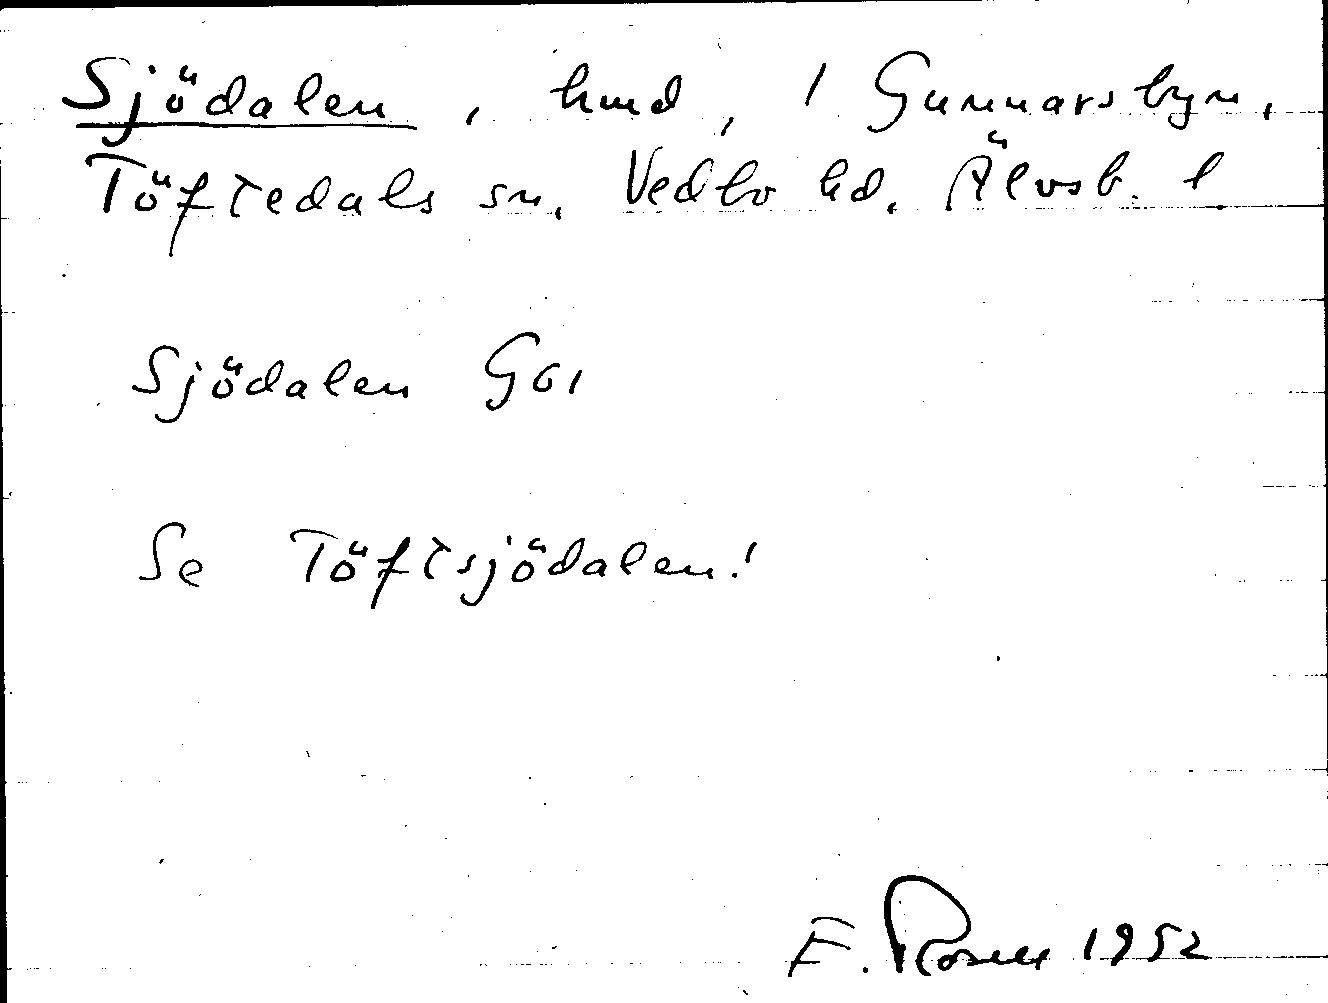 Sjödalen, hmd, i Gunnarsbyn,
Töftedals sn. Vedbo hd. Älvsb. l
Sjödalen G61
Se Töftsjödalen!
E. Rosell 1952